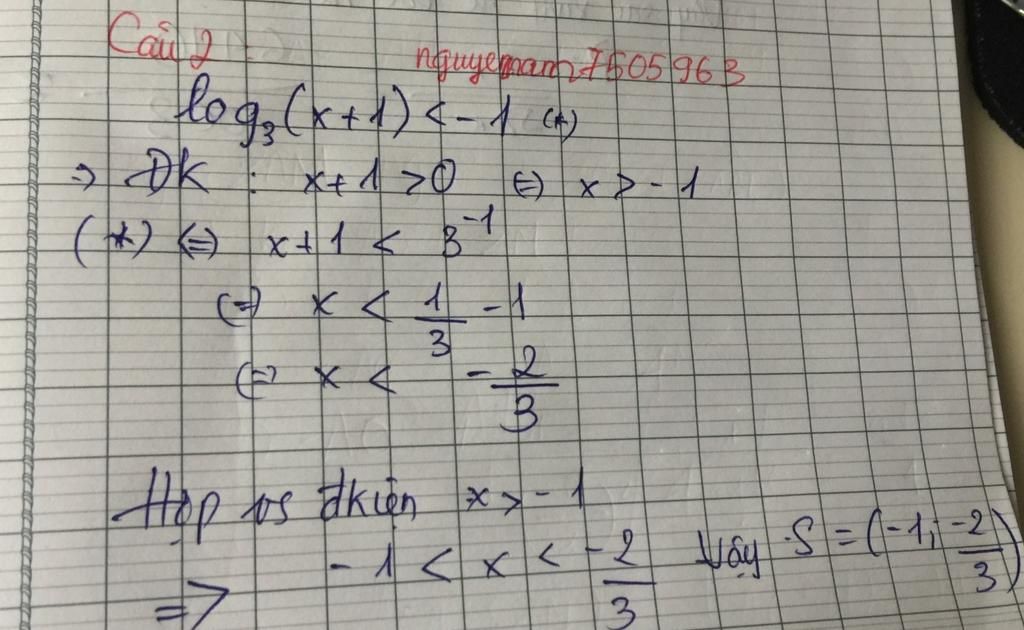 Câu 2 : nguyenam7505963
log₃(x+1) < -1 (*)
=> ĐK : x+1 >0 <=> x > -1
(*) <=> x+1 < 3⁻¹
<=> x < 1/3 - 1
<=> x < -2/3
Hợp vs đkiện x > -1
=> -1 < x < -2/3 Vậy S = (-1; -2/3)